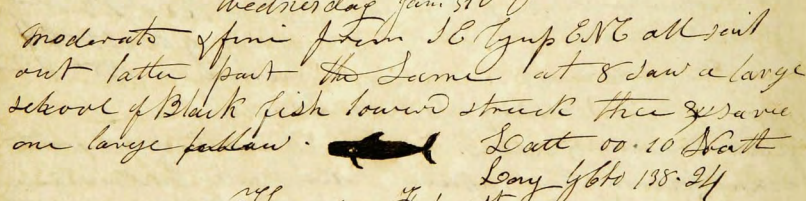 Wednesday Jan. 31
moderate & fine from SE up ENE all sail
out latter part the Same at 8 saw a large
school of Black fish lowerd struck thee & save
one large fellaw.
Latt 00.10 South
Long 138.24